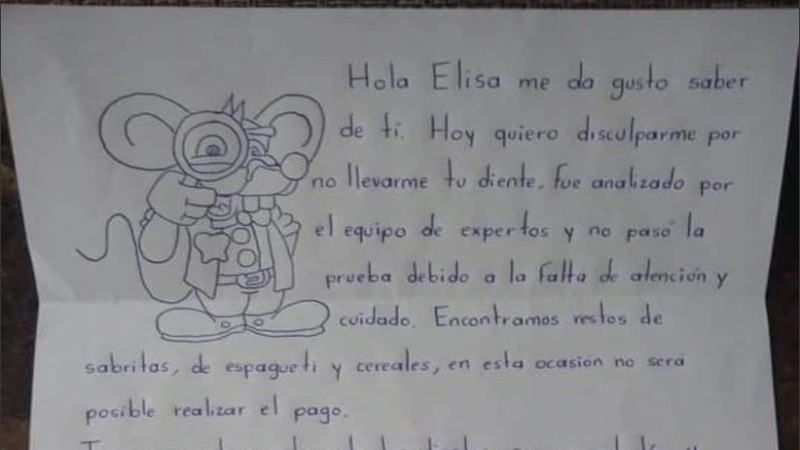 Hola Elisa me da gusto saber
de tí. Hoy quiero disculparme por
no llevarme tu diente, fue analizado por
el equipo de expertos y no pasó la
prueba debido a la falta de atención y
cuidado. Encontramos restos de
sabritas, de espagueti y cereales, en esta ocasión no será
posible realizar el pago.